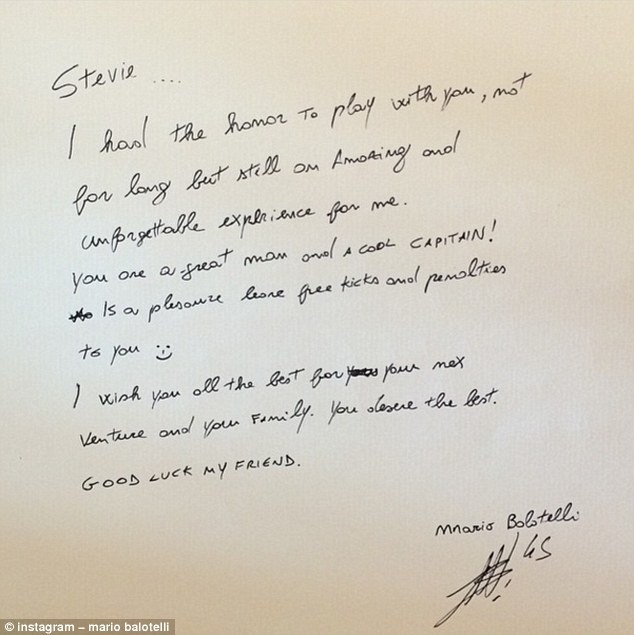 Stevie ....
I had the honor to play with you, not
for long but still an Amazing and
unforgettable experience for me.
you are a great man and a cool CAPITAIN!
Is a pleasure leave free kicks and penalties
to you :)
I wish you all the best for your nex
venture and your Family. You deserve the best.
GOOD LUCK MY FRIEND.
Mario Balotelli
45
© instagram – mario balotelli